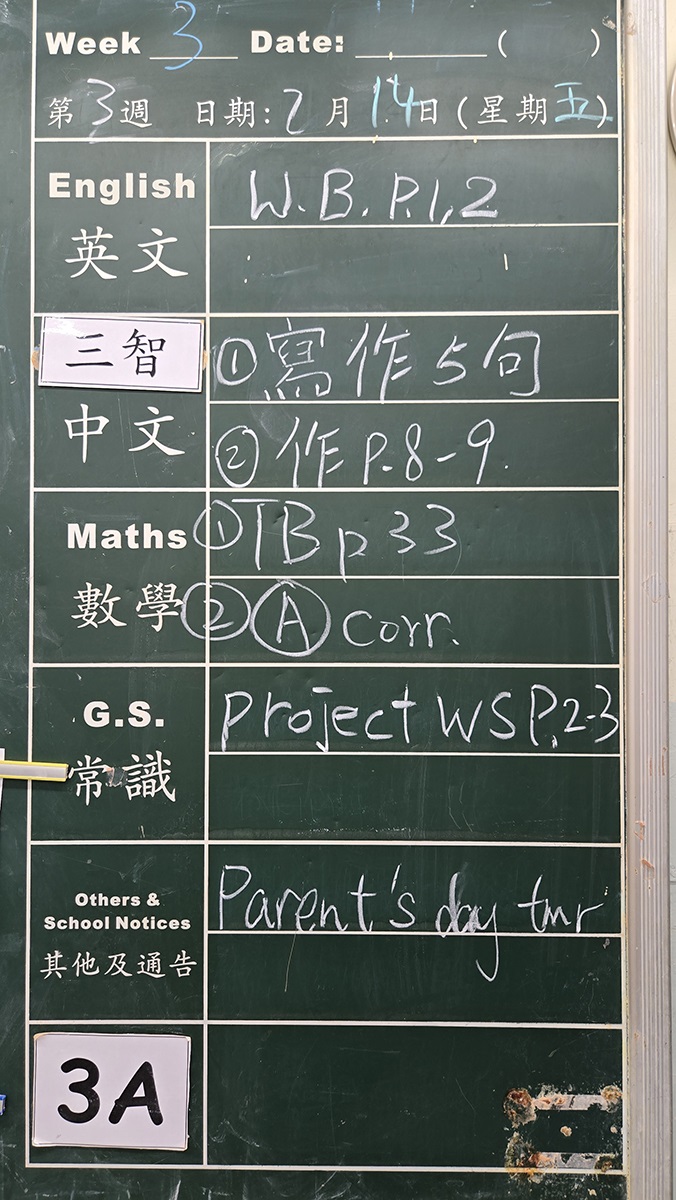 Week 3 Date: ( )
第3週 日期: 2月14日(星期五)
English W.B. P.1,2
英文
三智 ①寫作5句
中文 ②作P.8-9.
Maths ①TB p33
數學 ②Ⓐ corr.
G.S. Project WS P.2-3
常識
Others & Parent's day tmr
School Notices
其他及通告
3A